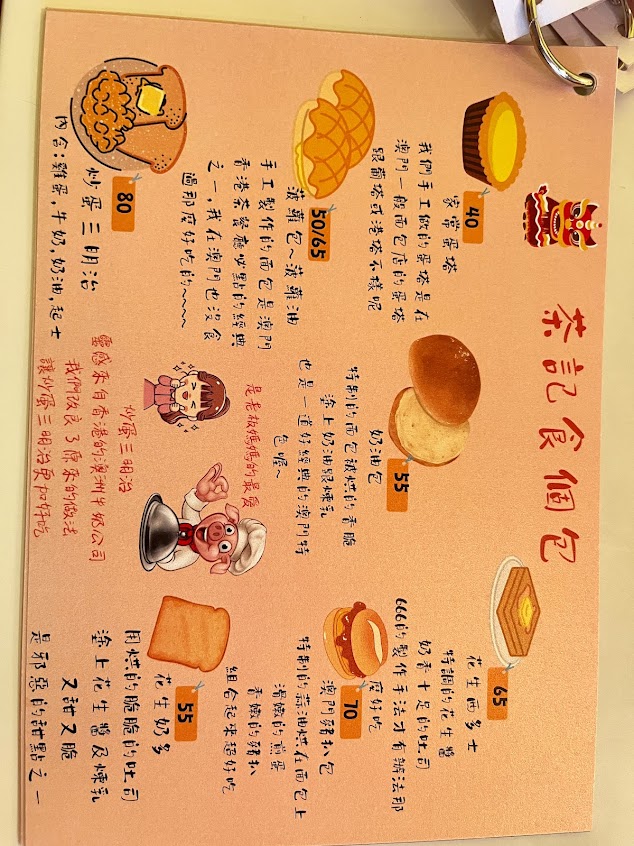 茶記食個包
40
家常蛋塔
我們手工做的蛋塔是在
澳門一般面包店的蛋塔
跟葡塔或港塔不樣呢
50/65
菠蘿包~菠蘿油
手工製作的面包是澳門
香港茶餐廳必點的經典
之一,我在澳門也沒食
過那麼好吃的~~~~
80
炒蛋三明治
內含:雞蛋,牛奶,奶油,起士
55
奶油包
特制的面包被烘的香脆
塗上奶油跟煉乳
也是一道好經典的澳門特
色喔~
是老板媽媽的最愛
炒蛋三明治
靈感來自香港的澳洲牛奶公司
我們改良了原來的做法
讓炒蛋三明治更加好吃
65
花生西多士
特調的花生醬
奶香十足的吐司
666的製作手法才有辦法那
麼好吃
70
澳門豬扒包
特制的蒜油烘在面包上
滑嫩的煎蛋
香嫩的豬扒
組合起來超好吃
55
花生奶多
用烘的脆脆的吐司
塗上花生醬及煉乳
又甜又脆
是邪惡的甜點之一